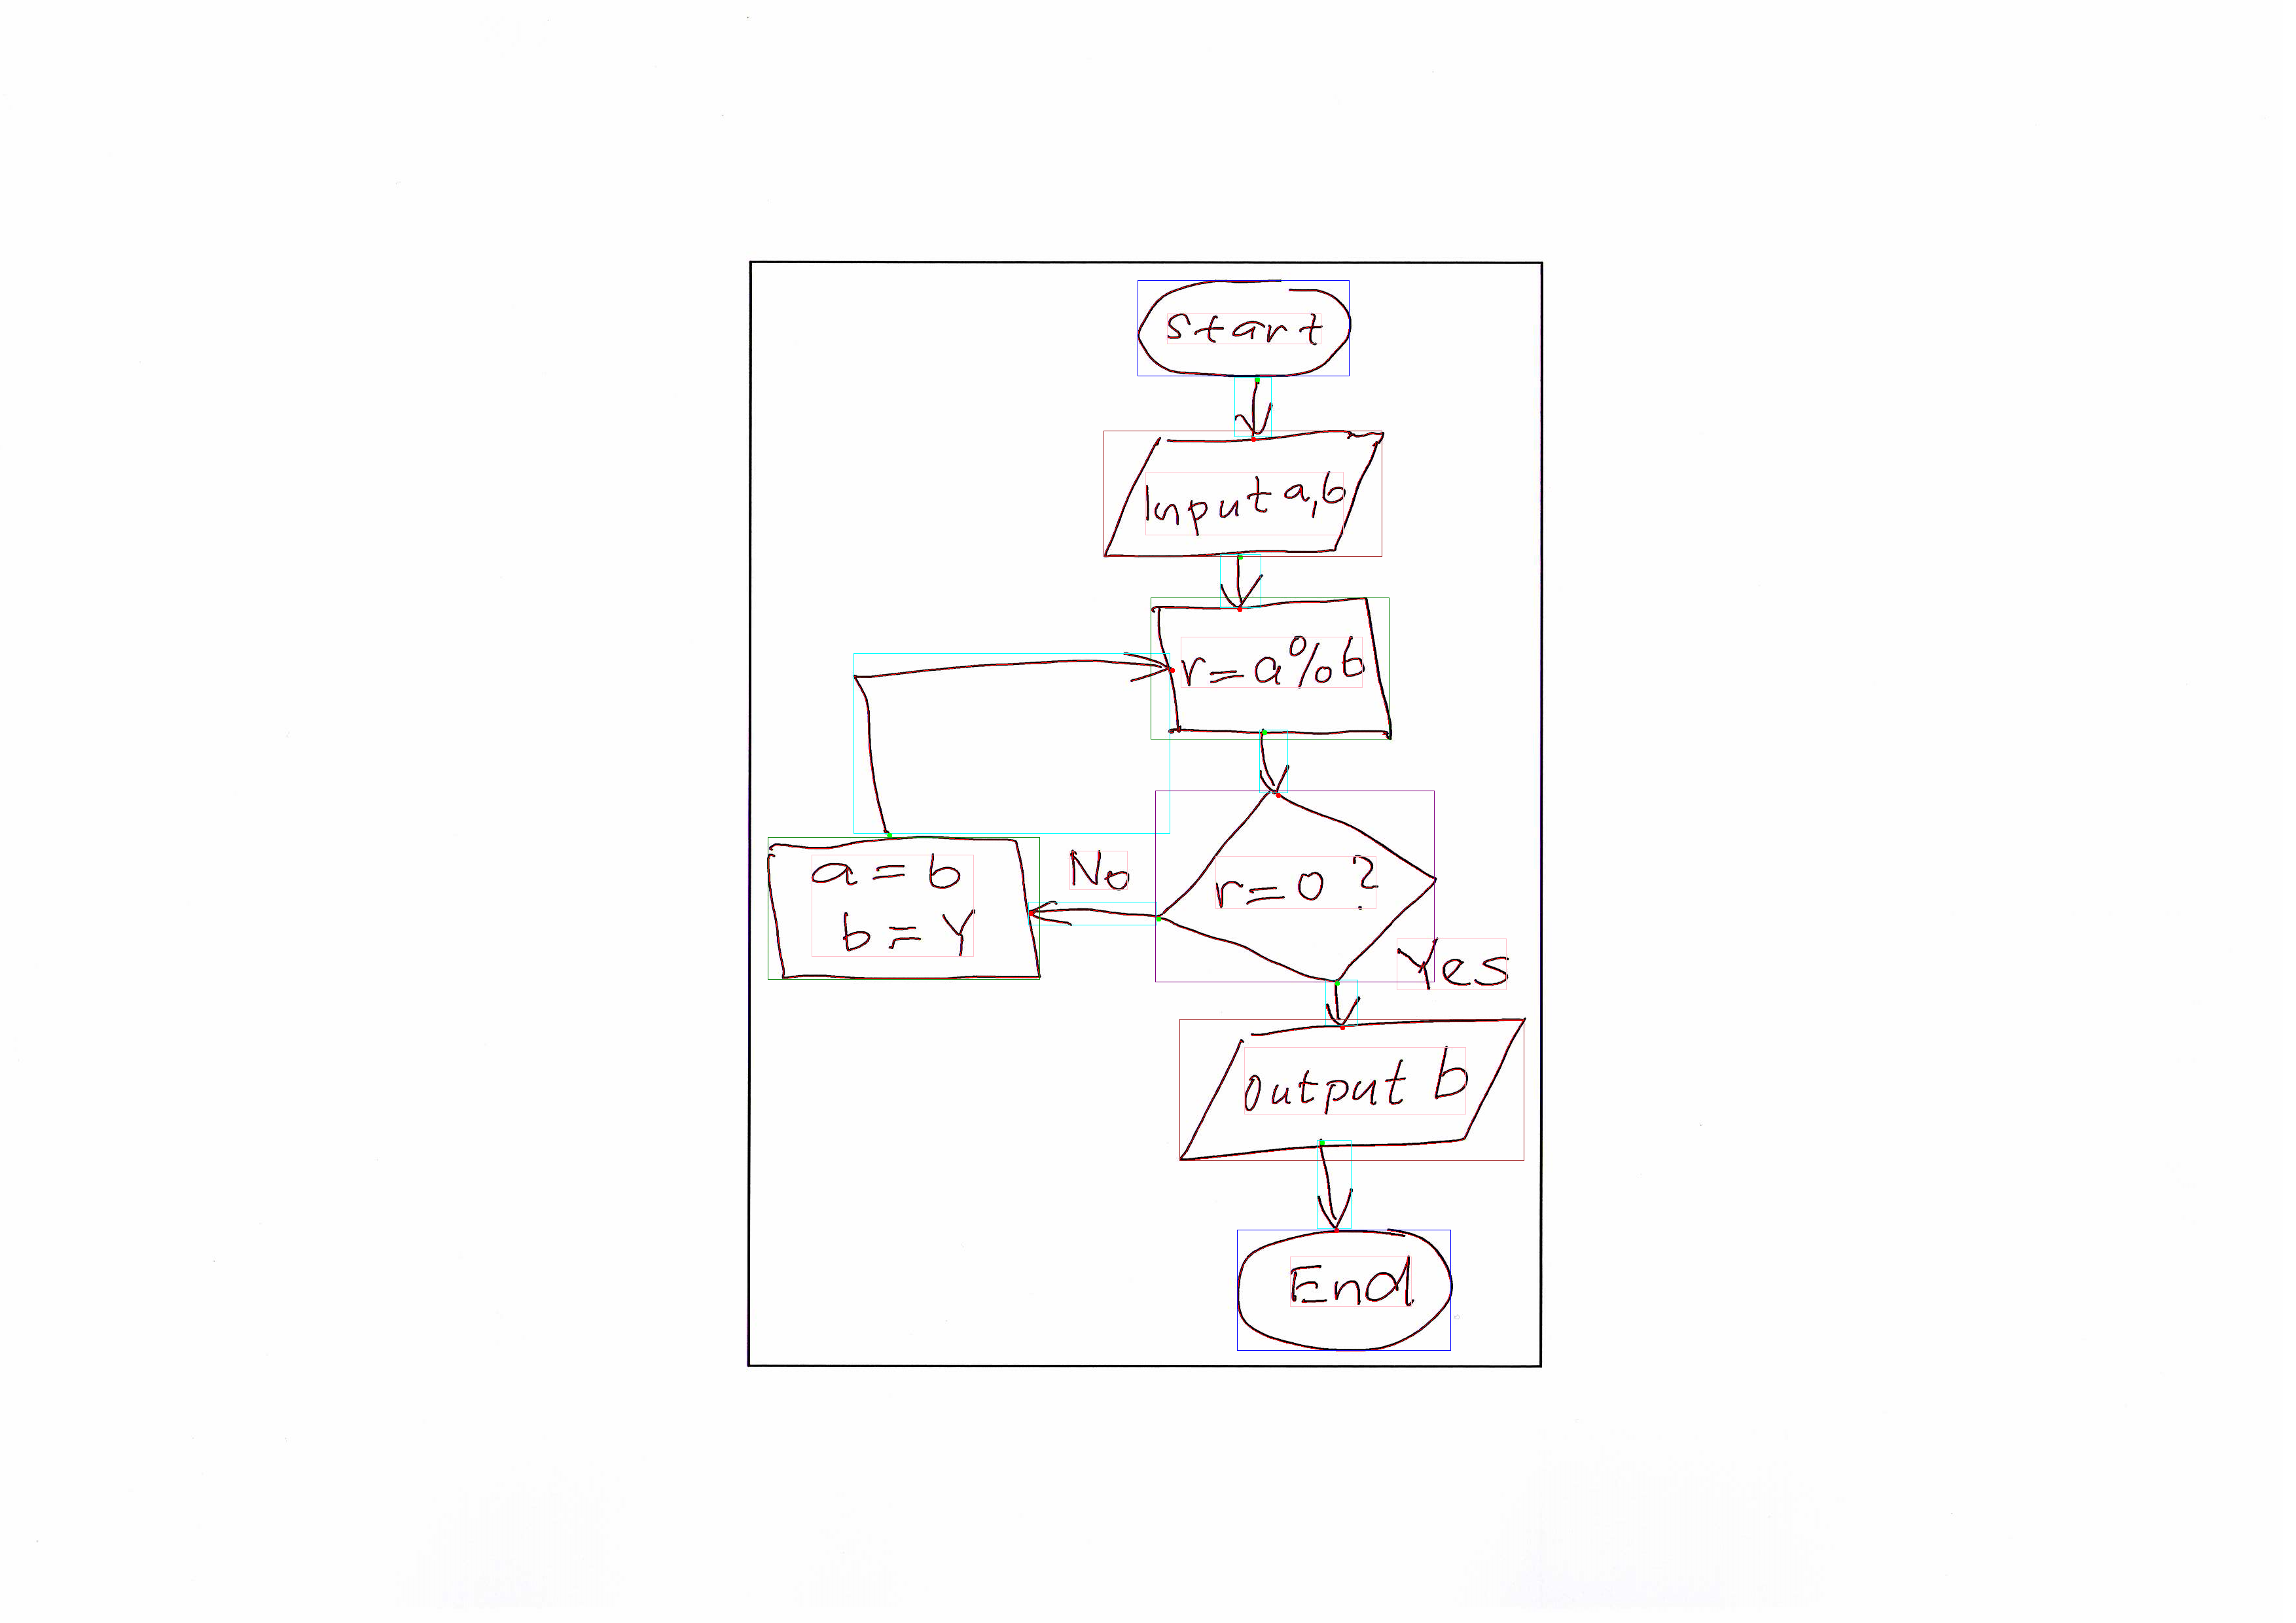 Start
Input a,b
r=a%b
r=0 ?
No
a=b
b=Y
Yes
Output b
End